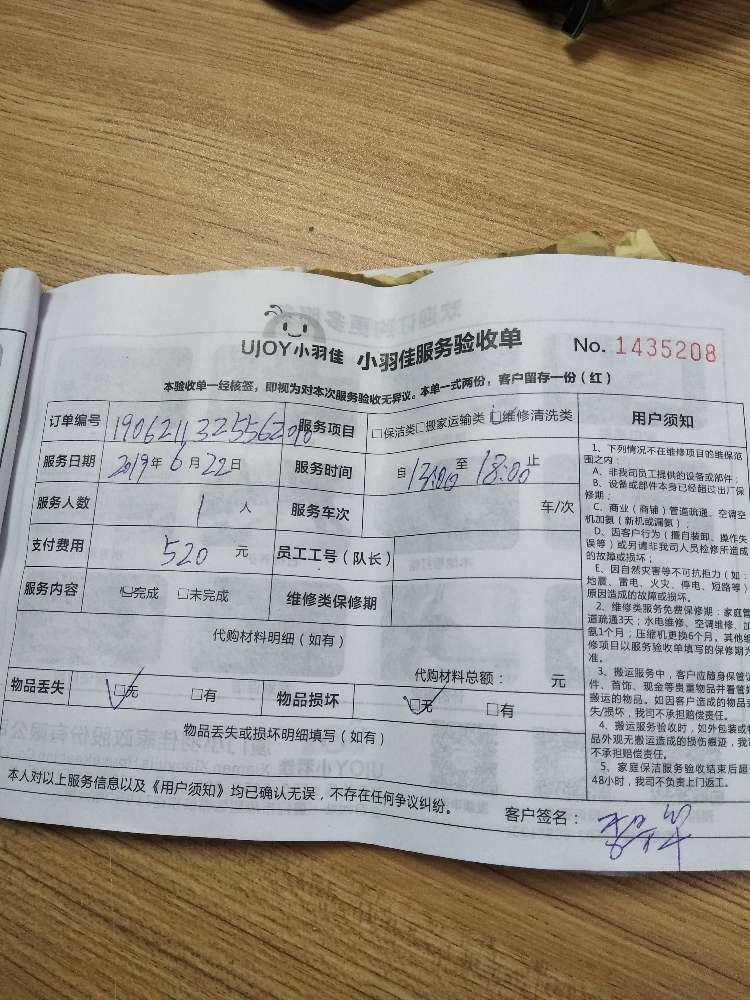 UJOY小羽佳 小羽佳服务验收单 No. 1435208
本验收单一经核签，即视为对本次服务验收无异议。本单一式两份，客户留存一份（红）
订单编号 服务项目 □保洁类□搬家运输类□维修清洗类
服务日期 2019年6月22日 服务时间 自13:00至18:00止
服务人数 1人 服务车次 车/次
支付费用 520元 员工工号（队长）
服务内容 □完成 □未完成 维修类保修期
代购材料明细（如有）
代购材料总额： 元
物品丢失 □无 □有 物品损坏 □无 □有
物品丢失或损坏明细填写（如有）
本人对以上服务信息以及《用户须知》均已确认无误，不存在任何争议纠纷。
客户签名：
用户须知
1、下列情况不在维修项目的维保范
围之内：
A、非我司员工提供的设备或部件；
B、设备或部件本身已经超过出厂保
修期；
C、商业（商铺）管道疏通、空调空
机加氨（新机或漏氨）；
D、因客户行为（擅自装卸、操作失
误等）或另请非我司人员检修所造成
的故障或损坏；
E、因自然灾害等不可抗拒力（如：
地震、雷电、火灾、停电、短路等）
原因造成的故障或损坏。
2、维修类服务免费保修期：家庭管
道疏通3天；水电维修、空调维修、加
氨1个月；压缩机更换6个月。其他维
修项目以服务验收单填写的保修期为
准。
3、搬运服务中，客户应随身保管证
件、首饰、现金等贵重物品并看管好
搬运的物品。如因客户造成的物品丢
失/损坏，我司不承担赔偿责任。
4、搬运服务验收时，如外包装或物
品外观无搬运造成的损伤痕迹，我司
不承担赔偿责任。
5、家庭保洁服务验收结束后超
48小时，我司不负责上门返工。